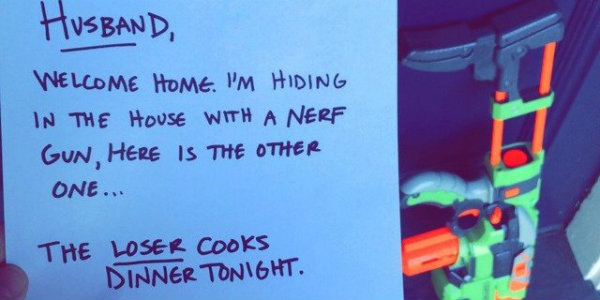 HUSBAND,
WELCOME HOME. I'M HIDING
IN THE HOUSE WITH A NERF
GUN, HERE IS THE OTHER
ONE...
THE LOSER COOKS
DINNER TONIGHT.